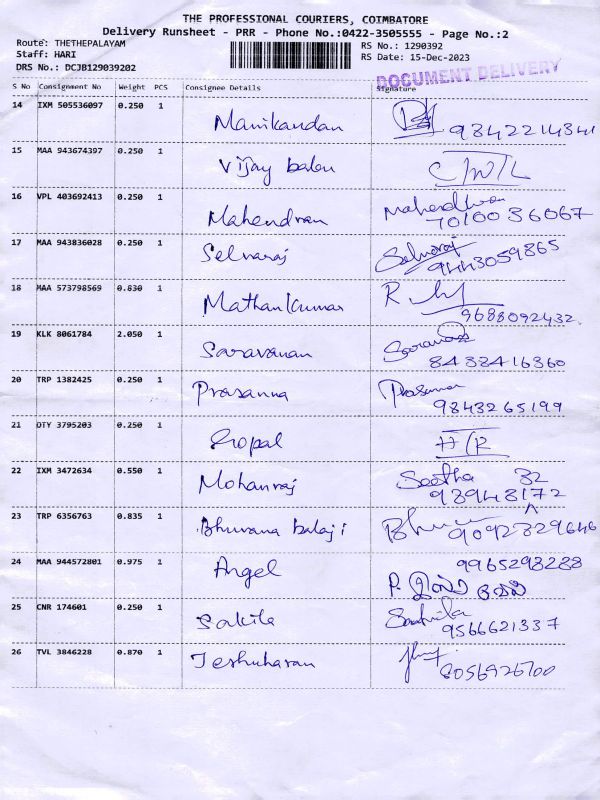 THE PROFESSIONAL COURIERS, COIMBATORE
Delivery Runsheet - PRR - Phone No.:0422-3505555 - Page No.:2
Route: THETHEPALAYAM
Staff: HARI
DRS No.: DCJB129039202
RS No.: 1290392
RS Date: 15-Dec-2023
DOCUMENT DELIVERY
S No Consignment No Weight PCS Consignee Details Signature
14 IXM 505536097 0.250 1 Manikandan 9342214341
15 MAA 943674397 0.250 1 Vijay balan
16 VPL 403692413 0.250 1 Mahendran Mahendran
7010036067
17 MAA 943836028 0.250 1 Selvaraj Selvaraj
9443059865
18 MAA 573798569 0.830 1 Mathan Kumar
9688092432
19 KLK 8061784 2.050 1 Saravanan Saravana
8438416360
20 TRP 1382425 0.250 1 Prasanna Prasanna
9843265199
21 OTY 3795203 0.250 1 Gopal
22 IXM 3472634 0.550 1 Mohanraj Seetha 82
93943172
23 TRP 6356763 0.835 1 Bhuvana balaji 9092329646
24 MAA 944572801 0.975 1 Angel 9965293288
25 CNR 174601 0.250 1 Sakila
9566621337
26 TVL 3846228 0.870 1 Jeshuharan
8056926700